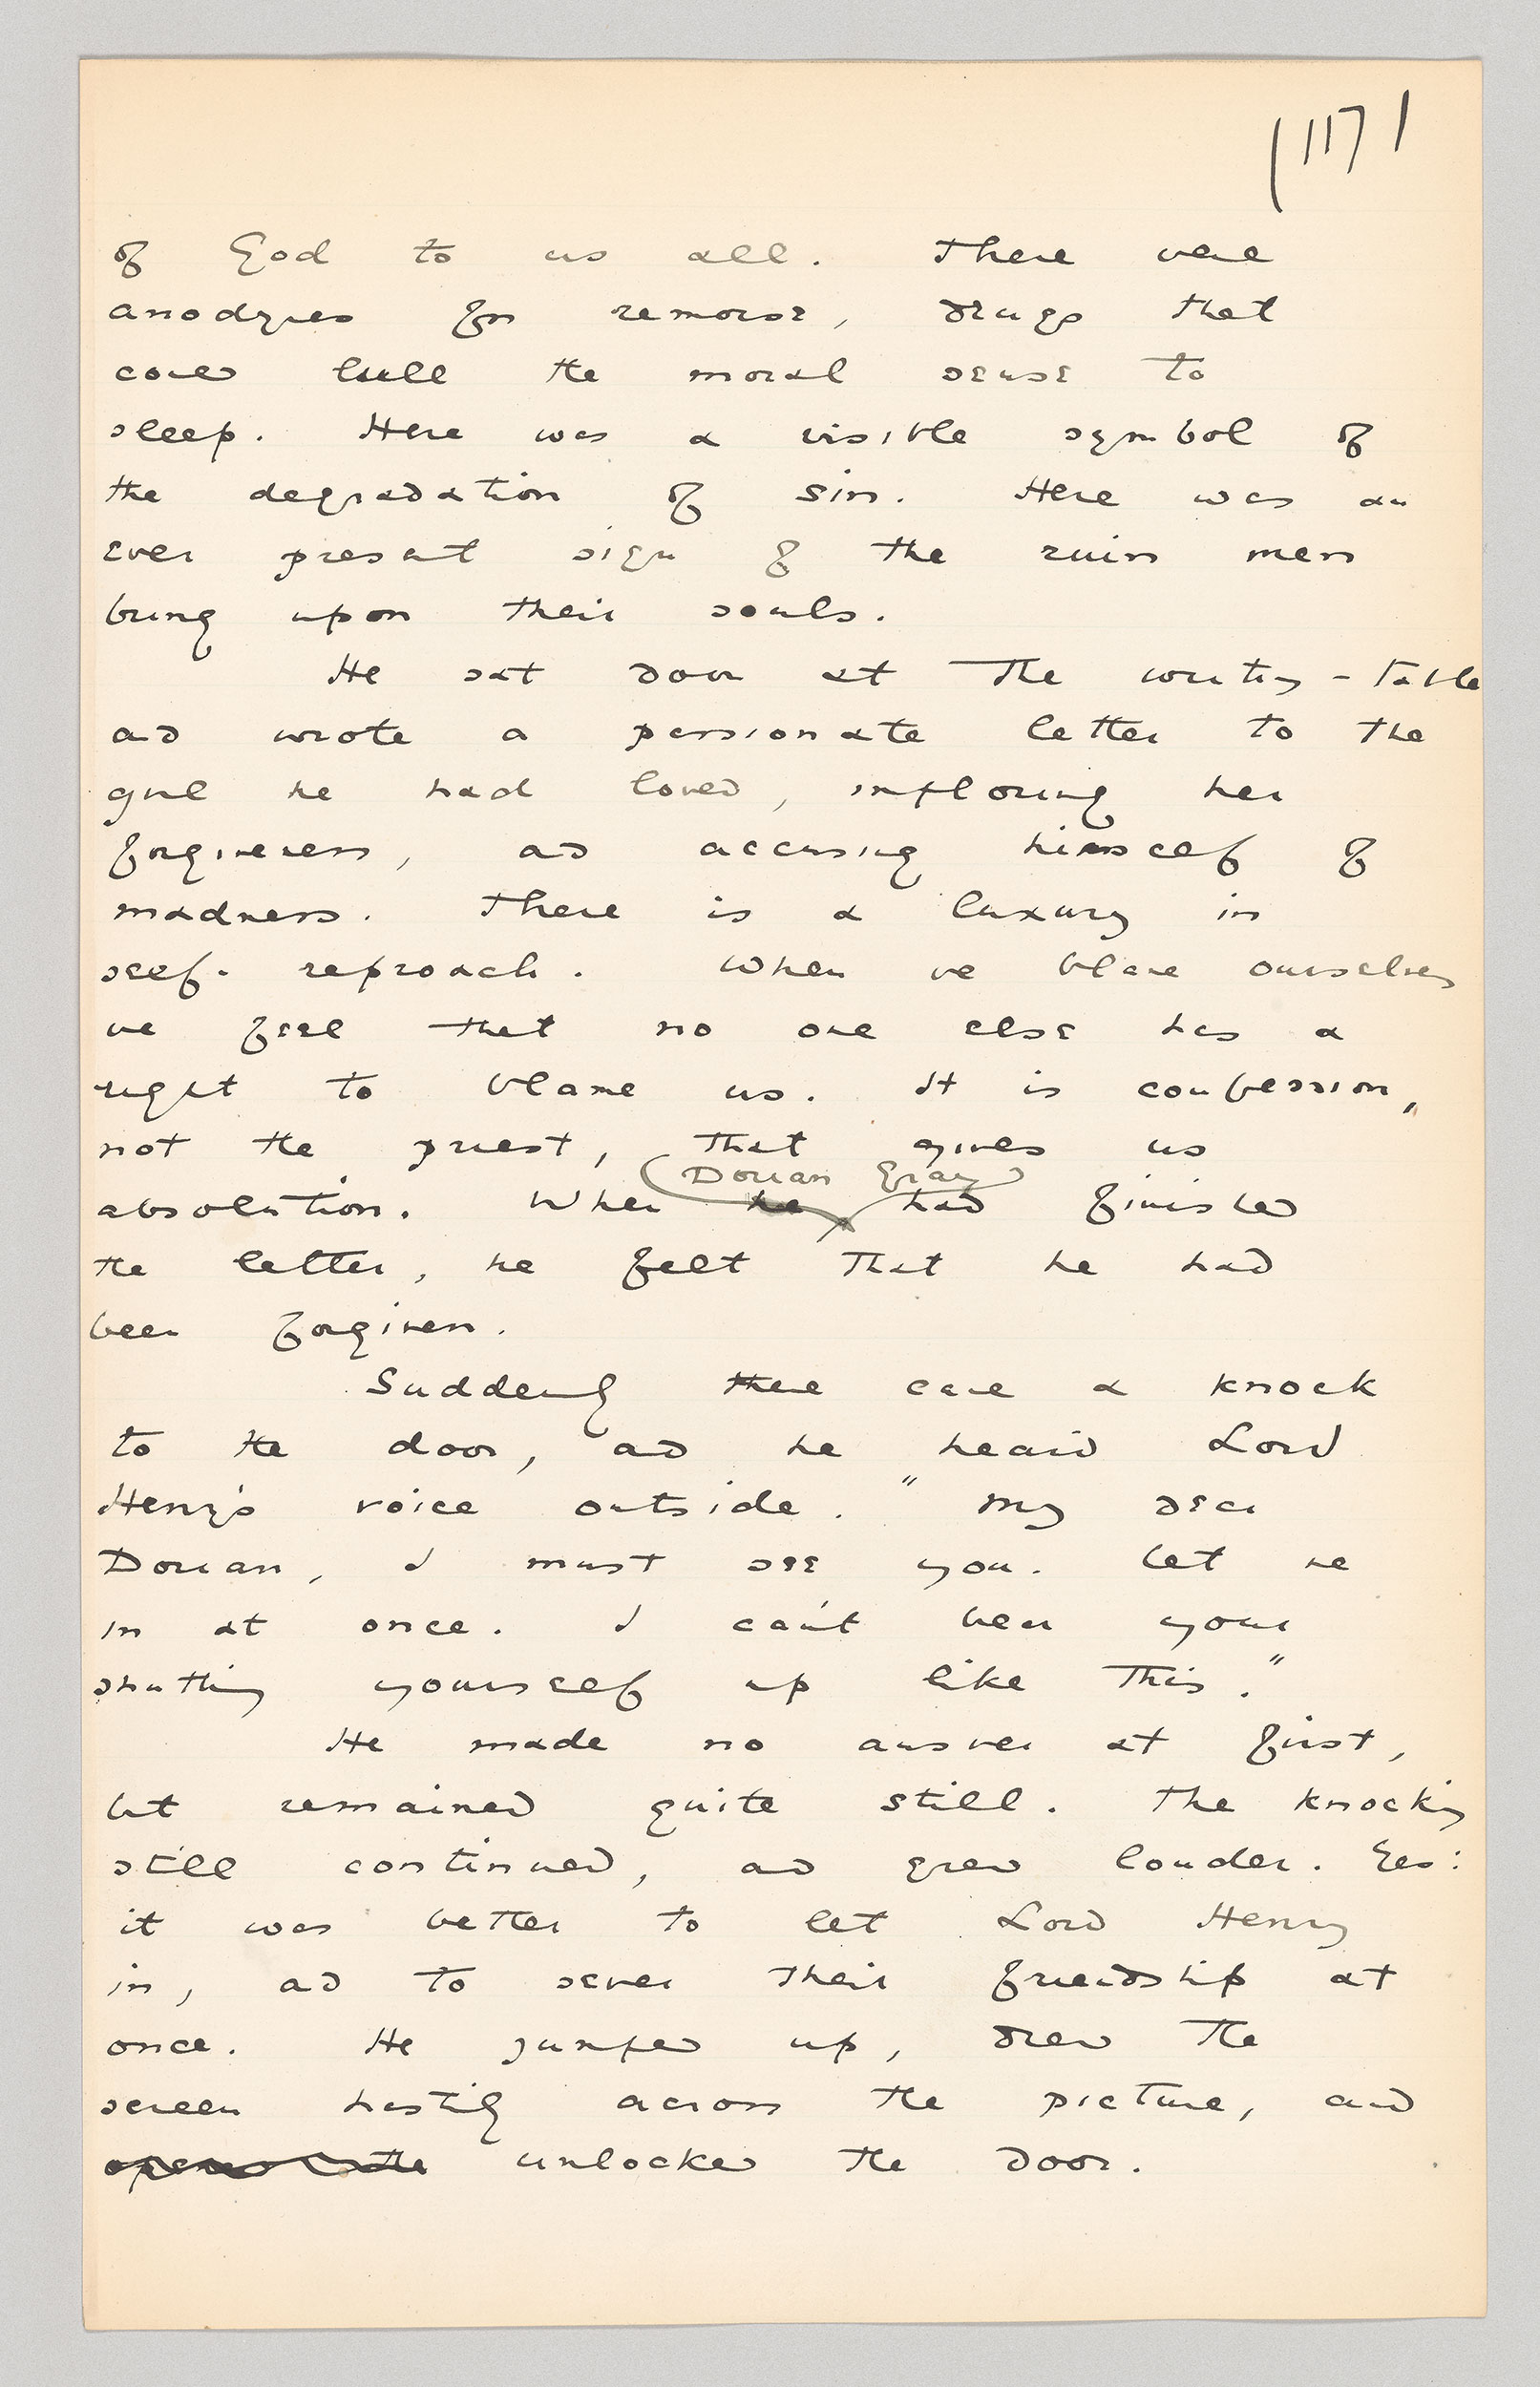 (117)
of God to us all. There were
anodynes for remorse, drugs that
could lull the moral sense to
sleep. Here was a visible symbol of
the degradation of sin. Here was an
ever present sign of the ruin men
bring upon their souls.
He sat down at the writing-table
and wrote a passionate letter to the
girl he had loved, imploring her
forgiveness, and accusing himself of
madness. There is a luxury in
self-reproach. When we blame ourselves
we feel that no one else has a
right to blame us. It is confession,
not the priest, that gives us
Dorian Gray
absolution. When he had finished
the letter, he felt that he had
been forgiven.
Suddenly there came a knock
to the door, and he heard Lord
Henry's voice outside. "My dear
Dorian, I must see you. Let me
in at once. I can't bear your
shutting yourself up like this."
He made no answer at first,
but remained quite still. The knocking
still continued, and grew louder. Yes:
it was better to let Lord Henry
in, and to sever their friendship at
once. He jumped up, drew the
screen hastily across the picture, and
opened the unlocked the door.